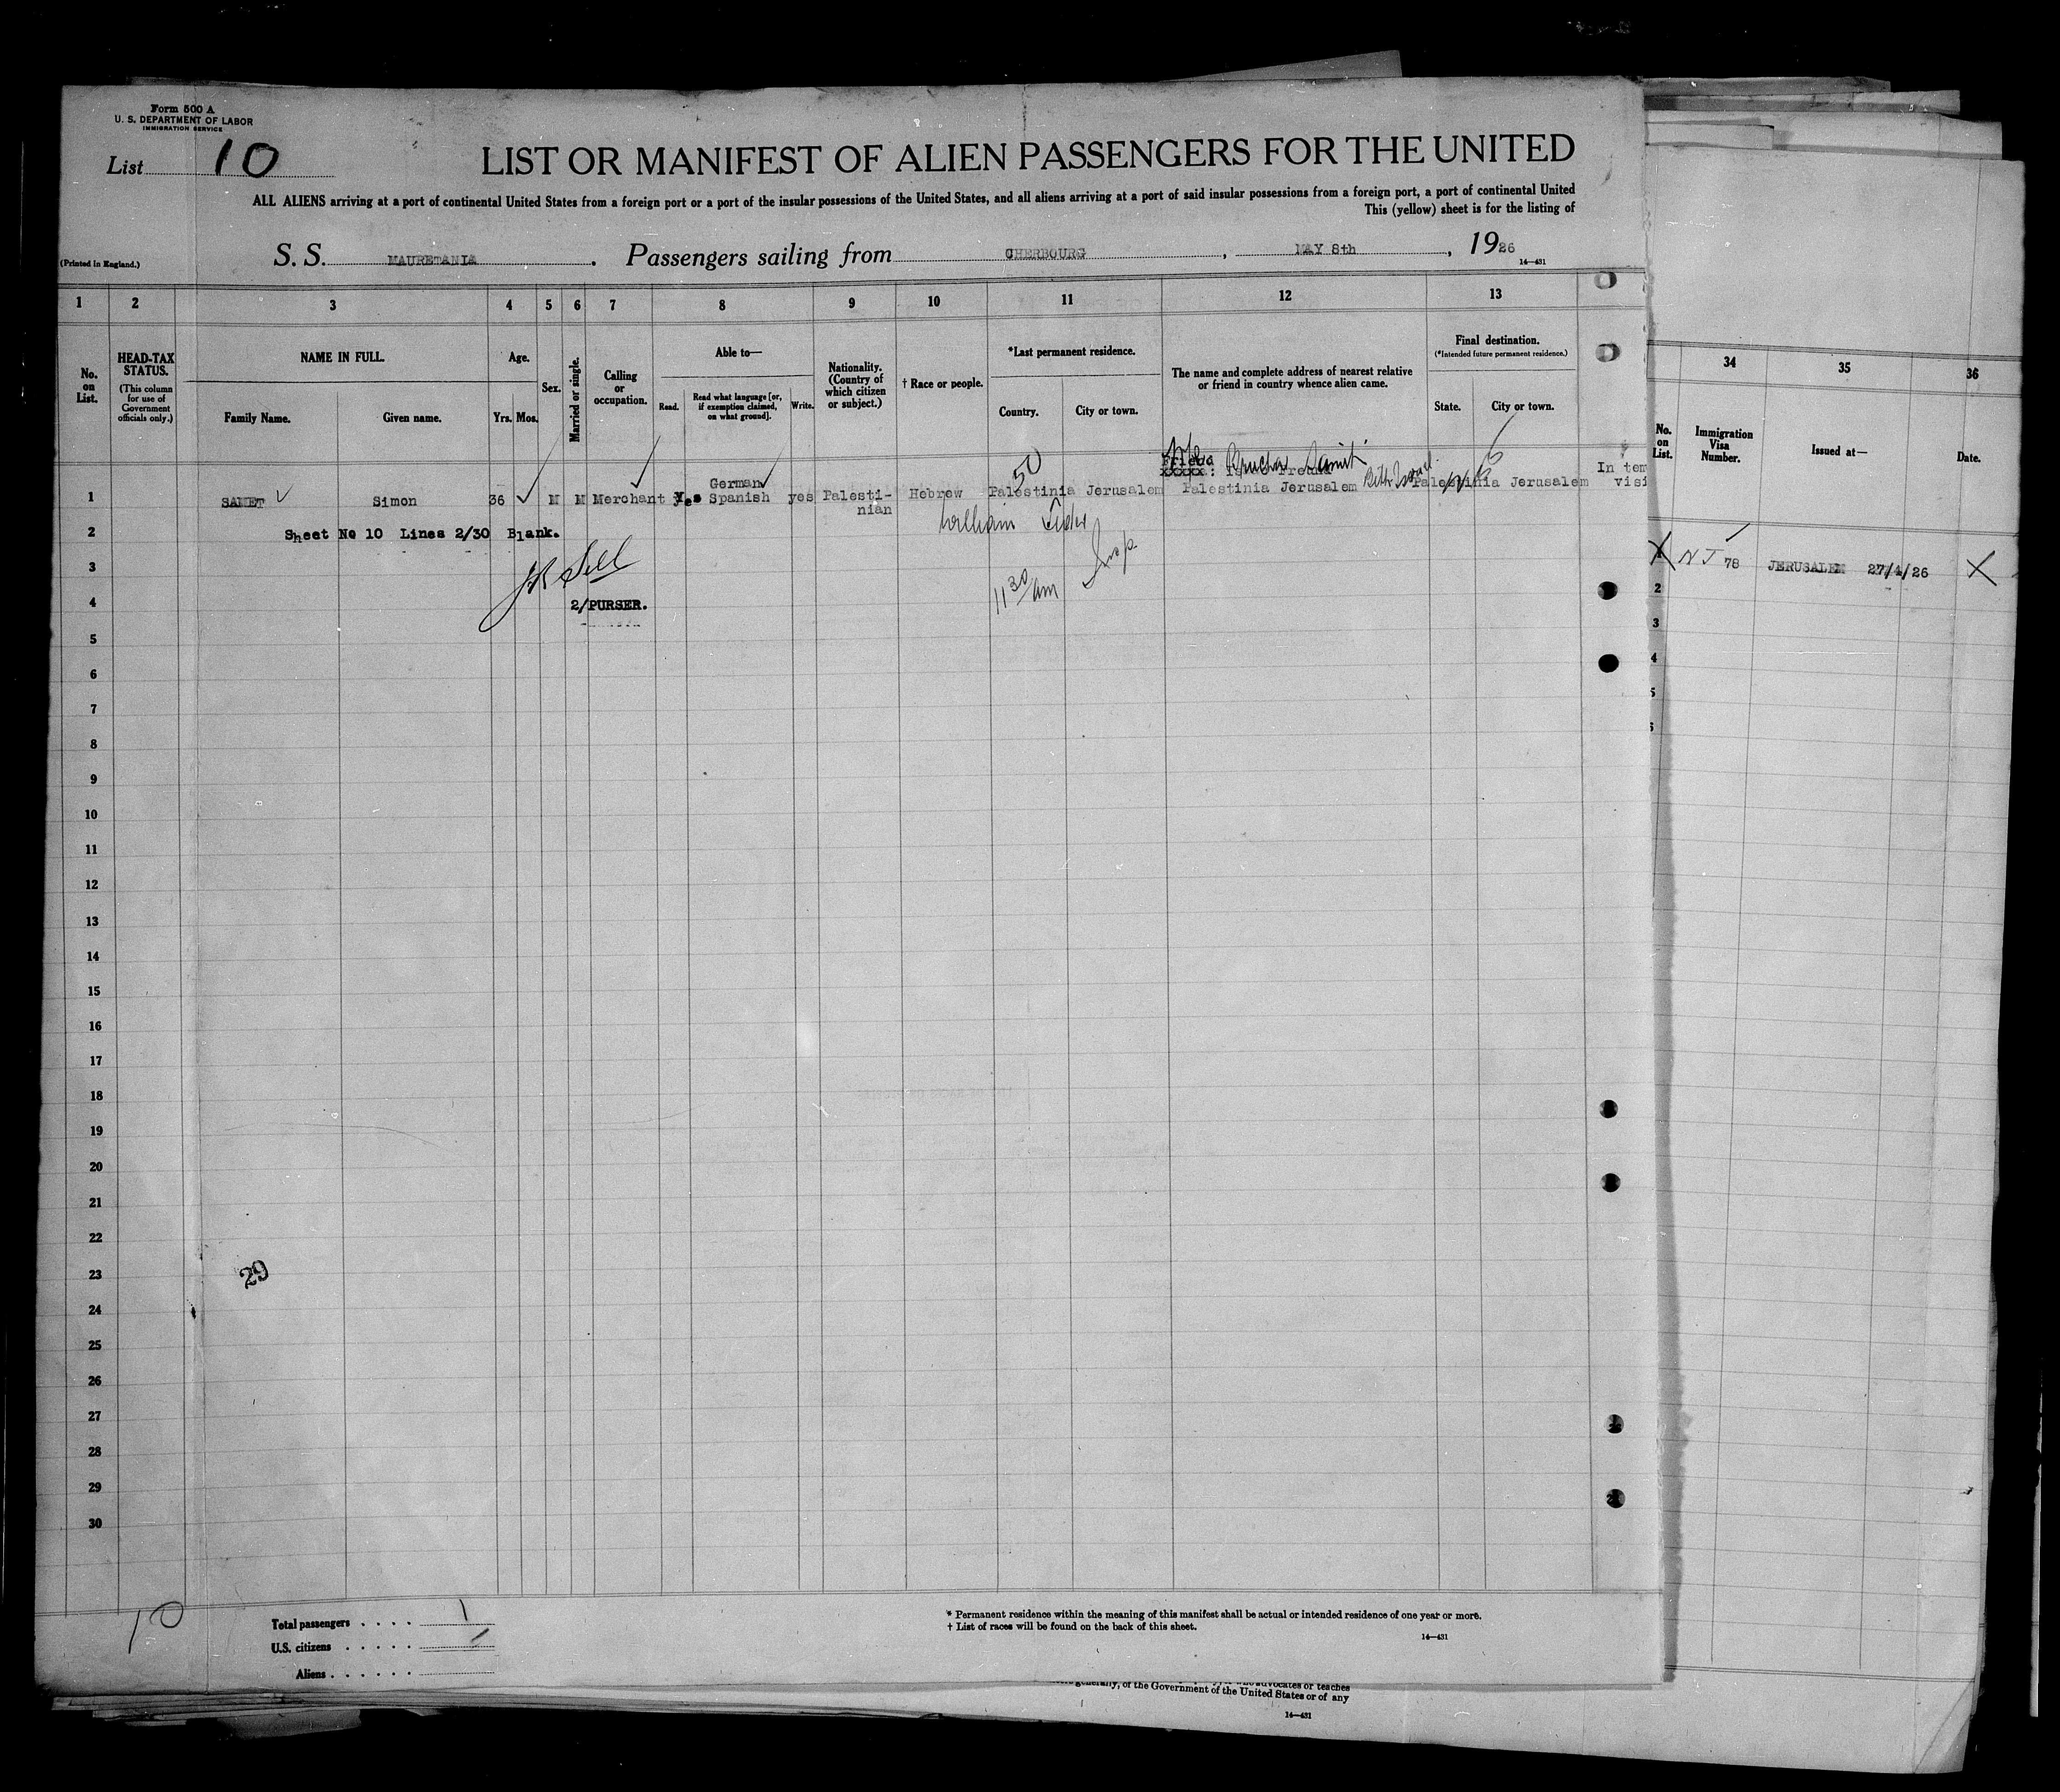 Form 500 A
U. S. DEPARTMENT OF LABOR
IMMIGRATION SERVICE
List 10
LIST OR MANIFEST OF ALIEN PASSENGERS FOR THE UNITED
ALL ALIENS arriving at a port of continental United States from a foreign port or a port of the insular possessions of the United States, and all aliens arriving at a port of said insular possessions from a foreign port, a port of continental United
This (yellow) sheet is for the listing of
(Printed in England.)
S. S. MAURETANIA. Passengers sailing from CHERBOURG, MAY 8th, 1926
14—431
1 2 3 4 5 6 7 8 9 10 11 12 13
No. on List.
HEAD-TAX STATUS.
(This column for use of Government officials only.)
NAME IN FULL.
Family Name. Given name.
Age.
Yrs. Mos.
Sex.
Married or single.
Calling or occupation.
Able to—
Read. Read what language [or, if exemption claimed, on what ground]. Write.
Nationality. (Country of which citizen or subject.)
† Race or people.
*Last permanent residence.
Country. City or town.
The name and complete address of nearest relative or friend in country whence alien came.
Final destination.
(*Intended future permanent residence.)
State. City or town.
34 35 36
No. on List.
Immigration Visa Number.
Issued at—
Date.
50
German
1 SAMET Simon 36 M M Merchant Yes Spanish yes Palesti- Hebrew Palestinia Jerusalem Palestinia Jerusalem Palestinia Jerusalem
nian
In tem
visi
2 Sheet No 10 Lines 2/30 Blank.
William
Insp.
11 30/am
3
4 2/PURSER.
5
6
7
8
9
10
11
12
13
14
15
16
17
18
19
20
21
22
23
29
24
25
26
27
28
29
30
1 NJ 78 JERUSALEM 27/4/26
2
3
4
5
10
Total passengers . . . . 1
U.S. citizens . . . . .
Aliens . . . . . .
* Permanent residence within the meaning of this manifest shall be actual or intended residence of one year or more.
† List of races will be found on the back of this sheet.
14—431
who advocates or teaches
generally, of the Government of the United States or of any
14—431